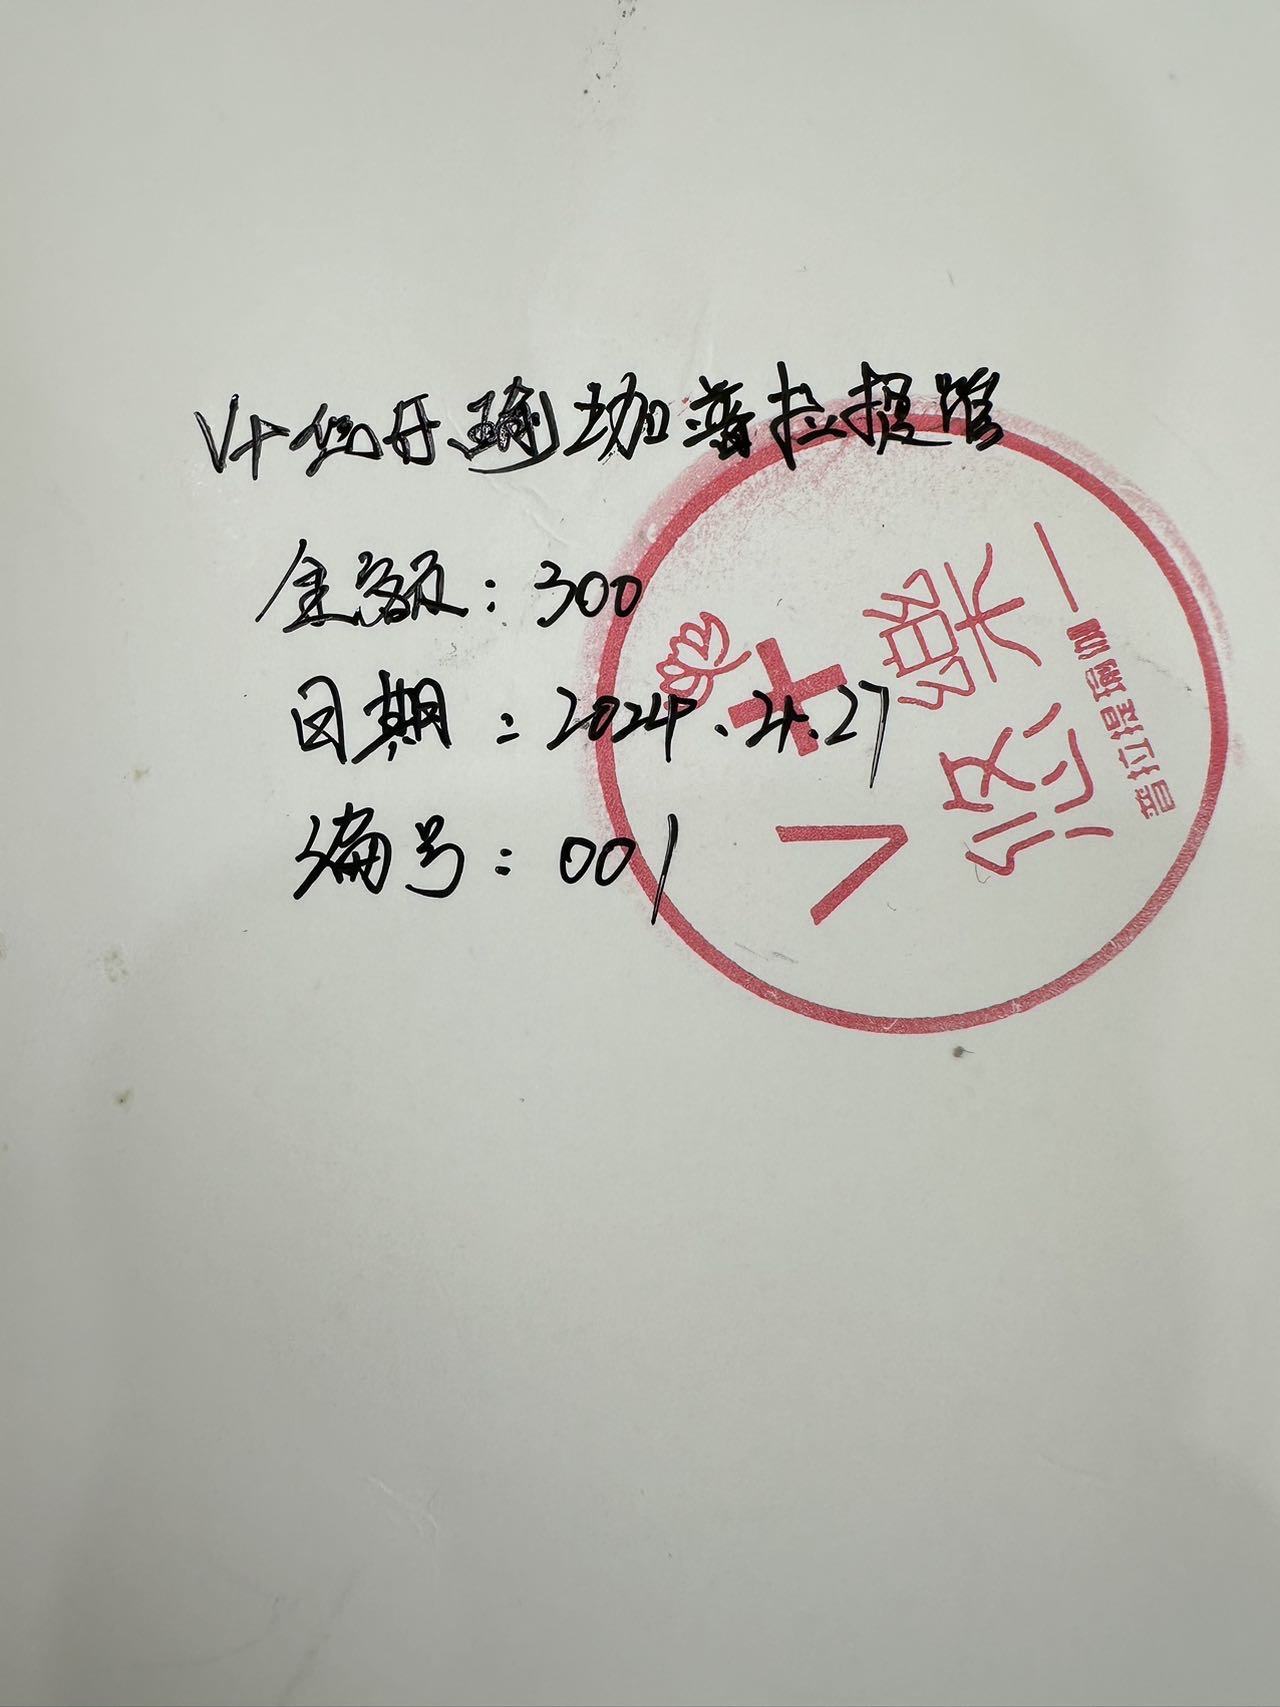 V+悠丹瑜珈普拉提馆
金额：300
日期：2024.4.27
编号：001
V+
悠
普拉提瑜伽